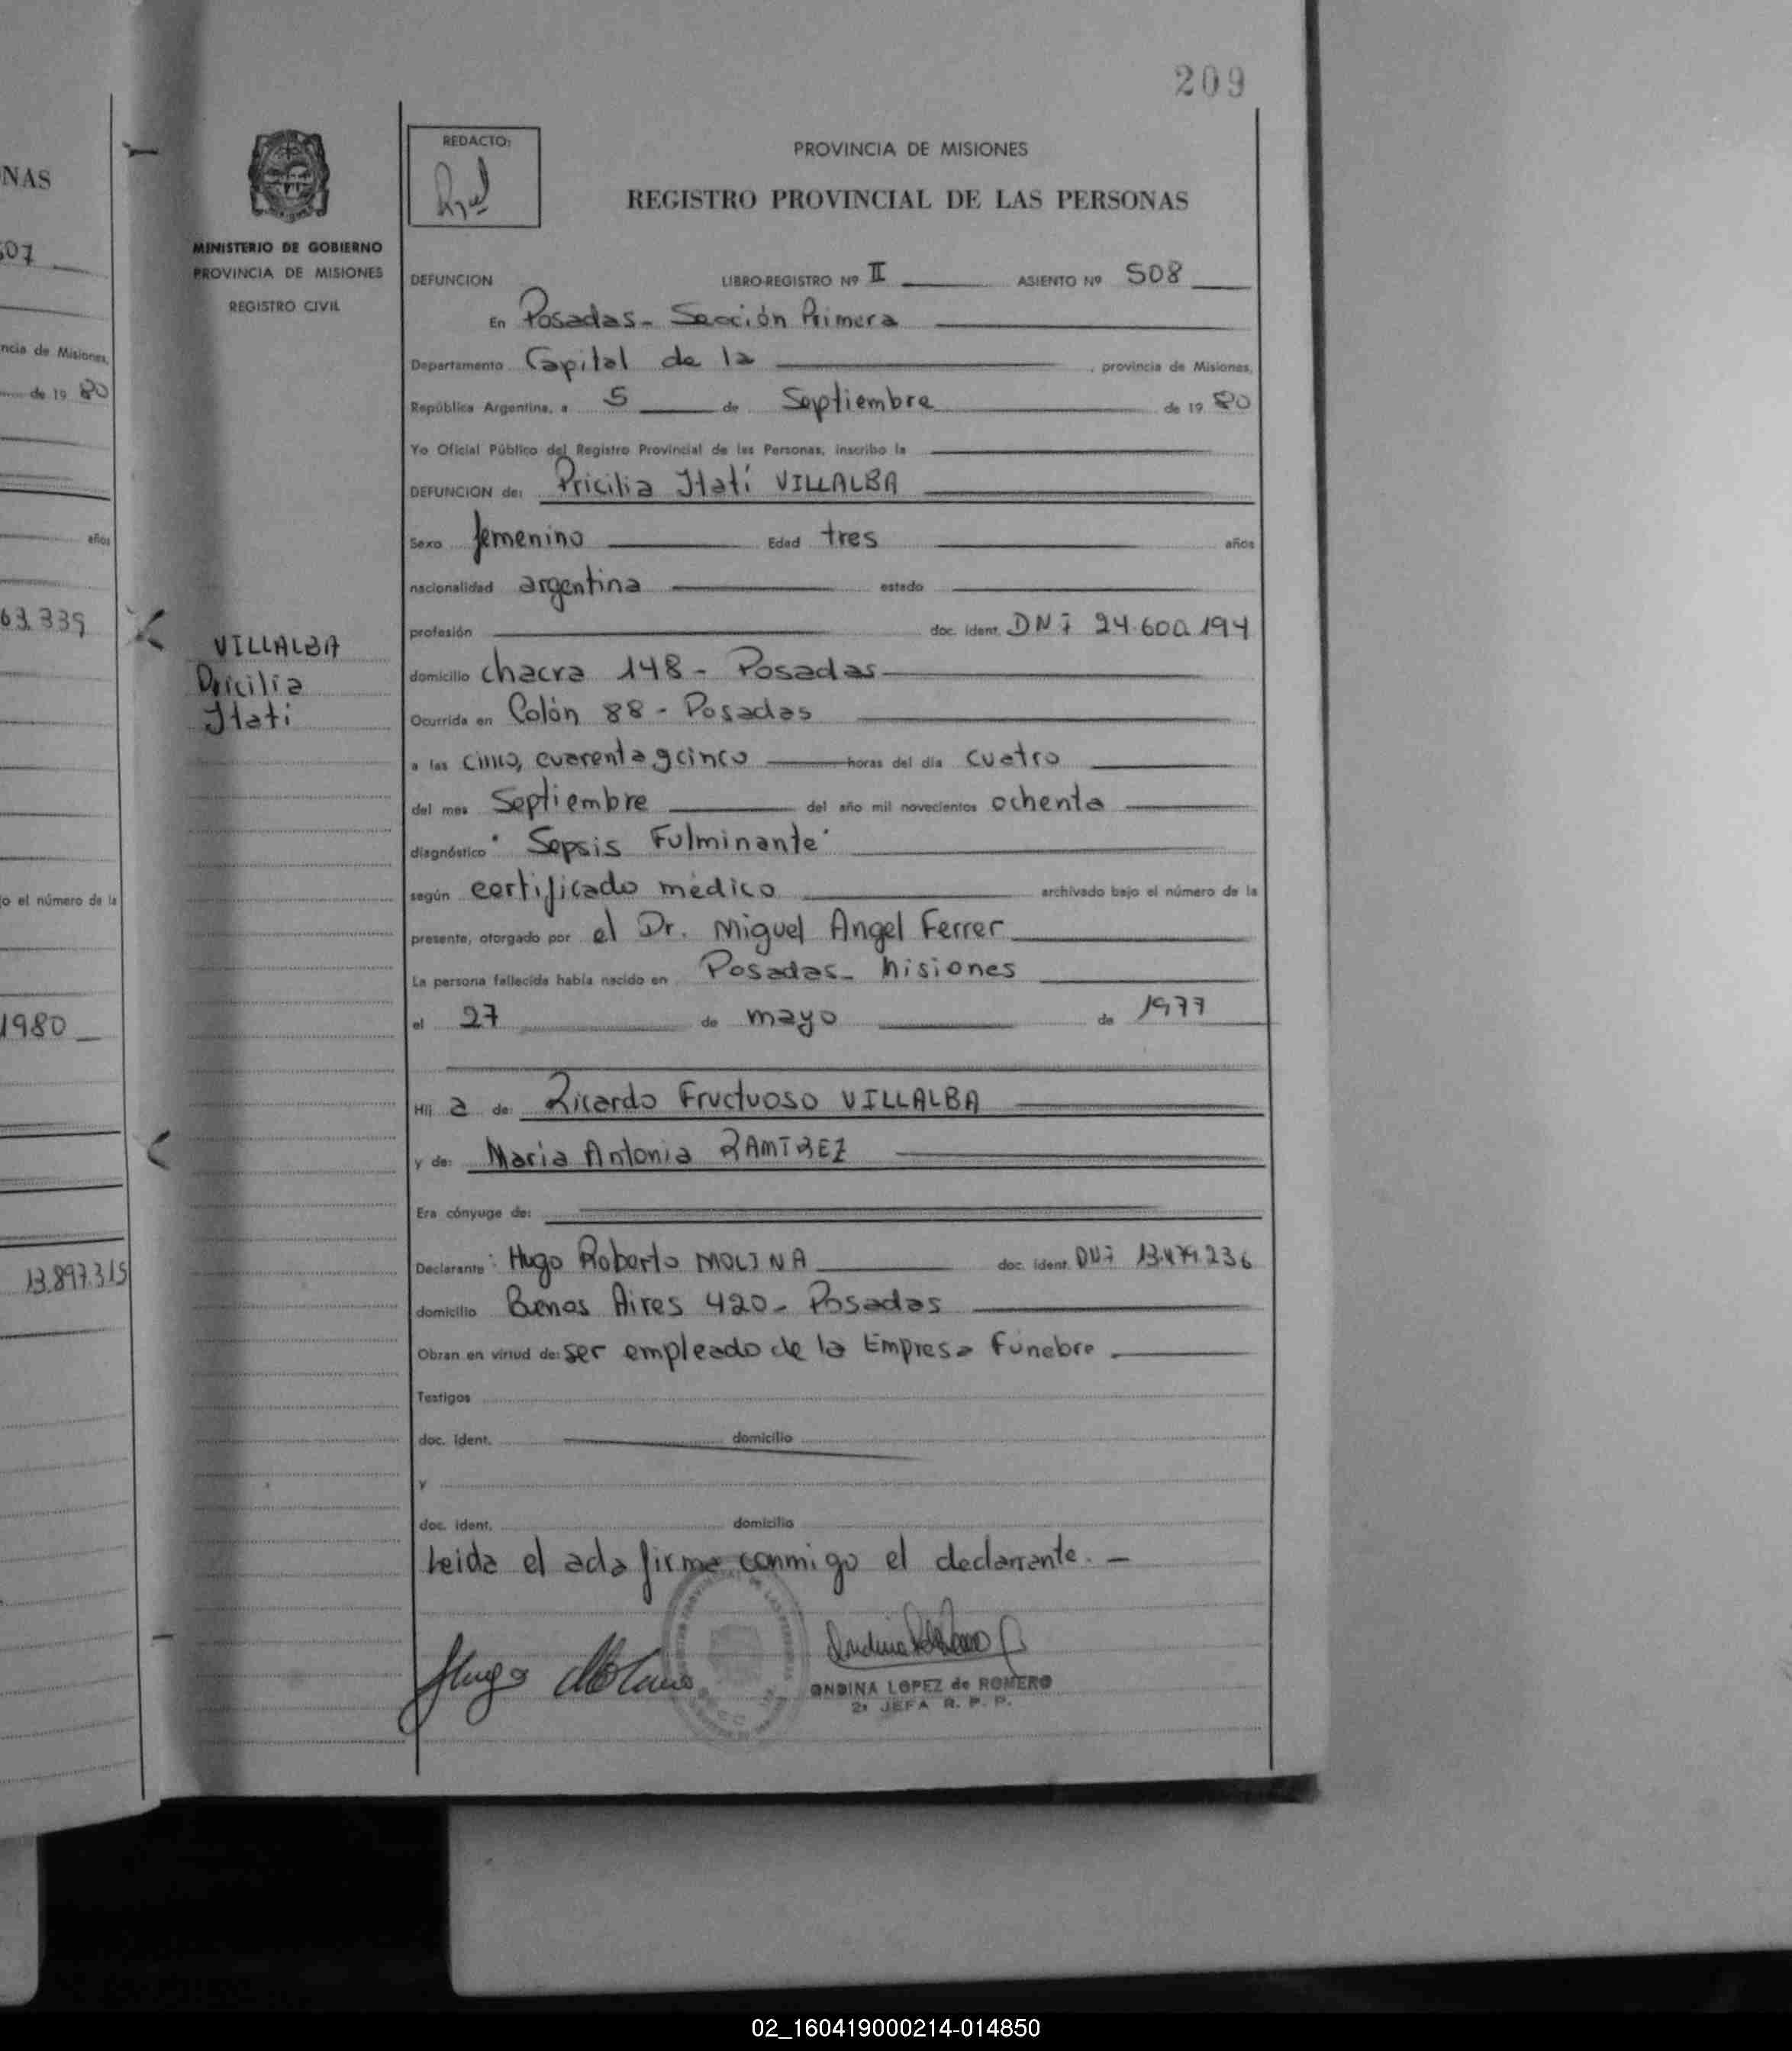 209
NAS
507
ncia de Misiones,
de 19 80
años
63.339
o el número de la
1980
13.897.315
MINISTERIO DE GOBIERNO
PROVINCIA DE MISIONES
REGISTRO CIVIL
VILLALBA
Pricilia
Itatí
REDACTO:
PROVINCIA DE MISIONES
REGISTRO PROVINCIAL DE LAS PERSONAS
DEFUNCION LIBRO-REGISTRO Nº II ASIENTO Nº 508
En Posadas - Sección Primera
Departamento Capital de la , provincia de Misiones,
República Argentina, a 5 de Septiembre de 19 80
Yo Oficial Público del Registro Provincial de las Personas, inscribo la
DEFUNCION de: Pricilia Itatí VILLALBA
Sexo femenino Edad tres años
nacionalidad argentina estado
profesión doc. ident. DNI 24.600.194
domicilio chacra 148 - Posadas
Ocurrida en Colón 88 - Posadas
a las cinco, cuarenta y cinco horas del día cuatro
del mes Septiembre del año mil novecientos ochenta
diagnóstico "Sepsis Fulminante"
según certificado médico archivado bajo el número de la
presente, otorgado por el Dr. Miguel Angel Ferrer
La persona fallecida había nacido en Posadas - Misiones
el 27 de mayo de 1977
Hij a de: Ricardo Fructuoso VILLALBA
y de: Maria Antonia RAMIREZ
Era cónyuge de:
Declarante: Hugo Roberto MOLINA doc. ident. DNI 13.479.236
domicilio Buenos Aires 420 - Posadas
Obran en virtud de: ser empleado de la Empresa Fúnebre
Testigos
doc. ident. domicilio
y
doc. ident. domicilio
Leida el acta firma conmigo el declarante. -
Hugo Molina
ONDINA LOPEZ de ROMERO
2ª JEFA R. P. P.
02_160419000214-014850